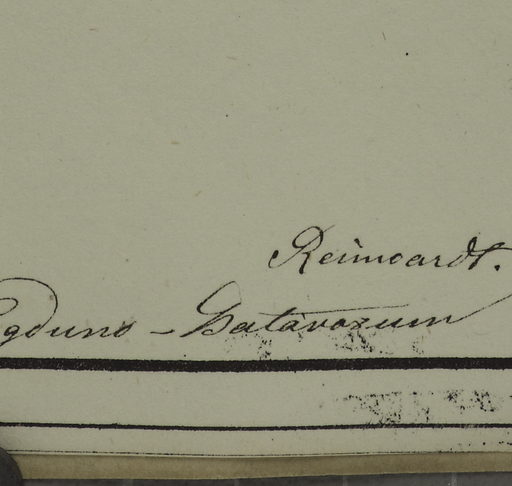 Reinwardt.
gduno-Batavorum